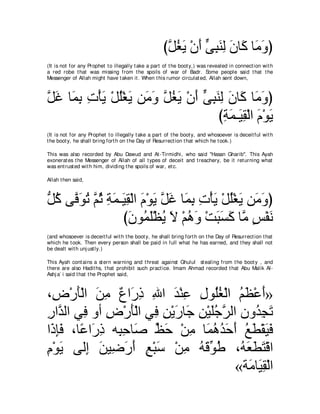 (وَمَا كَانَ لِنَبِىٍّ أَنْ يَغُلَّ)
(It is not for any Prophet to illegally take a part of the booty,) was revealed in connection with
a red robe that was missing from the spoils of war of Badr. Some people said that the
Messenger of Allah might have taken it. When this rumor circulated, Allah sent down,
(وَمَا كَانَ لِنَبِىٍّ أَنْ يَغُلَّ وَمَن يَغْلُلْ يَأْتِ بِمَا غَلَّ
يَوْمَ الْقِيَـمَةِ)
(It is not for any Prophet to illegally take a part of the booty, and whosoever is deceitful with
the booty, he shall bring forth on the Day of Resurrection that which he took.)
This was also recorded by Abu Dawud and At-Tirmidhi, who said "Hasan Gharib". This Ayah
exonerates the Messenger of Allah of all types of deceit and treachery, be it returning what
was entrusted with him, dividing the spoils of war, etc.
Allah then said,
(وَمَن يَغْلُلْ يَأْتِ بِمَا غَلَّ يَوْمَ الْقِيَـمَةِ ثُمَّ تُوَفَّى كُلُّ
نَفْسٍ مَّا كَسَبَتْ وَهُمْ لاَ يُظْلَمُونَ)
(and whosoever is deceitful with the booty, he shall bring forth on the Day of Resurrection that
which he took. Then every person shall be paid in full what he has earned, and they shall not
be dealt with unjustly.)
This Ayah contains a stern warning and threat against Ghulul stealing from the booty , and
there are also Hadiths, that prohibit such practice. Imam Ahmad recorded that Abu Malik Al-
Ashja`i said that the Prophet said,
«أَعْظَمُ الْغُلُولِ عِنْدَ اللهِ ذِرَاعٌ مِنَ الْأَرْضِ،
تَجِدُونَ الرَّجُلَيْنِ جَارَيْنِ فِي الْأَرْضِ أو فِي الدَّارِ
فَيَقْطَعُ أَحَدُهُمَا مِنْ حَظِّ صَاحِبِهِ ذِرَاعًا، فَإِذَا
اقْتَطَعَهُ، طُوِّقَهُ مِنْ سَبْعِ أَرَضِينَ إِلَى يَوْمِ
الْقِيَامَةِ»